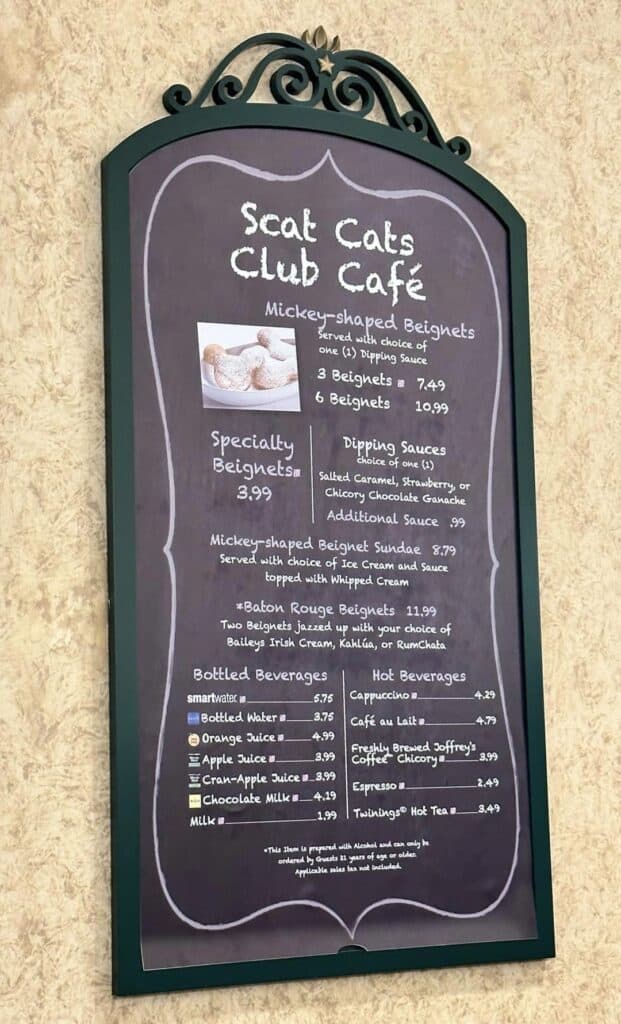 Scat Cats
Club Café
Mickey-shaped Beignets
Served with choice of
one (1) Dipping Sauce
3 Beignets 7.49
6 Beignets 10.99
Specialty
Beignets
3.99
Dipping Sauces
choice of one (1)
Salted Caramel, Strawberry, or
Chicory Chocolate Ganache
Additional Sauce .99
Mickey-shaped Beignet Sundae 8.79
Served with choice of Ice Cream and Sauce
topped with Whipped Cream
*Baton Rouge Beignets 11.99
Two Beignets jazzed up with your choice of
Baileys Irish Cream, Kahlúa, or RumChata
Bottled Beverages
smartwater 5.75
Bottled Water 3.75
Orange Juice 4.99
Apple Juice 3.99
Cran-Apple Juice 3.99
Chocolate Milk 4.19
Milk 1.99
Hot Beverages
Cappuccino 4.29
Café au Lait 4.79
Freshly Brewed Joffrey's
Coffee Chicory 3.99
Espresso 2.49
Twinings® Hot Tea 3.49
*This Item is prepared with Alcohol and can only be
ordered by Guests 21 years of age or older.
Applicable sales tax not included.